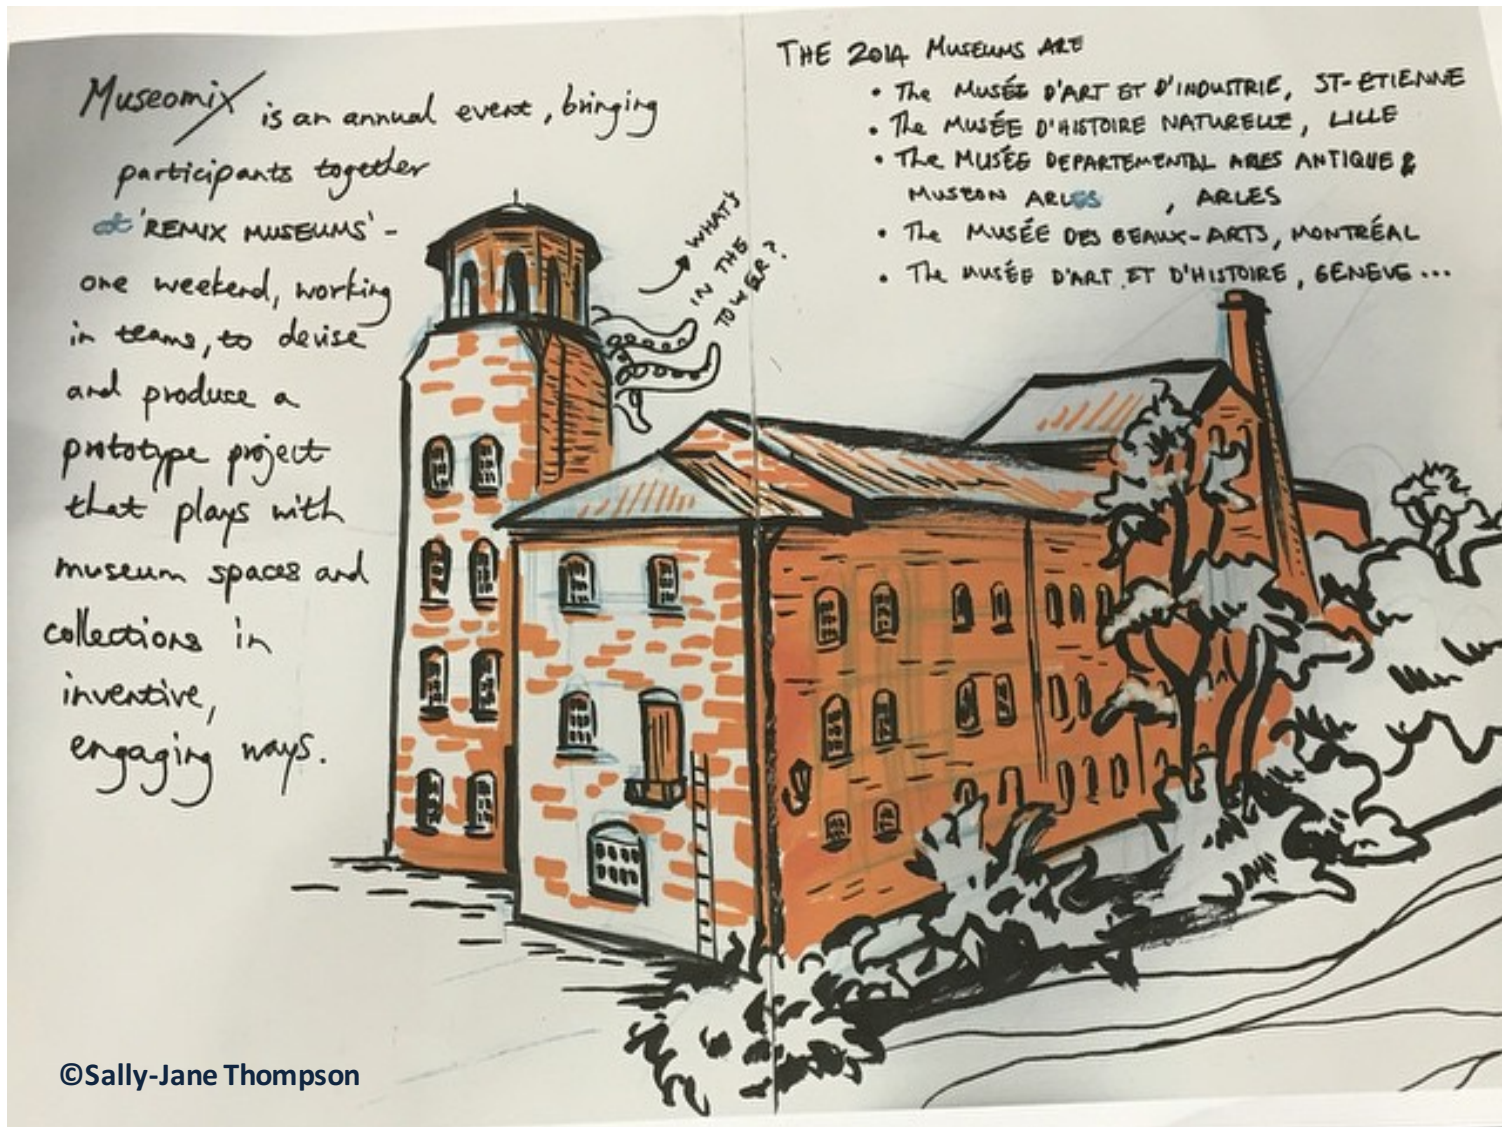 Museomix is an annual event, bringing
participants together
at 'REMIX MUSEUMS' -
one weekend, working
in teams, to devise
and produce a
prototype project
that plays with
museum spaces and
collections in
inventive,
engaging ways.
WHAT'S
IN THE
TOWER?
THE 2014 MUSEUMS ARE
• The MUSÉE D'ART ET D'INDUSTRIE, ST-ETIENNE
• The MUSÉE D'HISTOIRE NATURELLE, LILLE
• The MUSÉE DEPARTEMENTAL ARLES ANTIQUE &
MUSEON ARLES , ARLES
• The MUSÉE DES BEAUX-ARTS, MONTRÉAL
• The MUSÉE D'ART ET D'HISTOIRE, GENEVE ...
©Sally-Jane Thompson